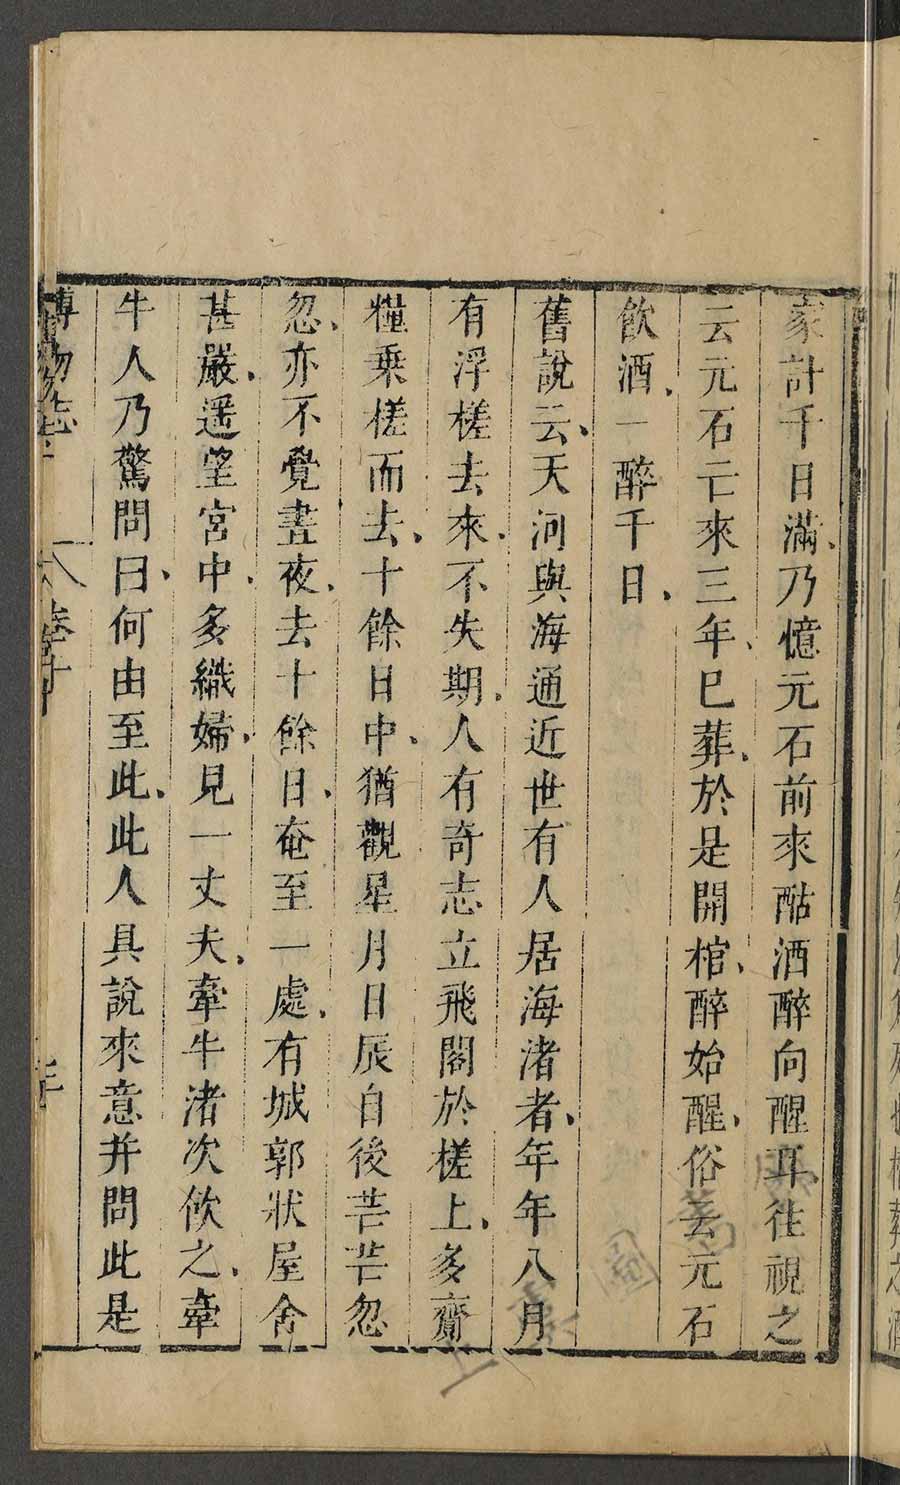 家計千日滿乃憶元石前來酤酒醉向醒耳往視之
云元石亡來三年巳葬於是開棺醉始醒俗云元石
飲酒一醉千日
舊說云天河與海通近世有人居海渚者年年八月
有浮槎去來不失期人有奇志立飛閣於槎上多齎
糧乗槎而去十餘日中猶觀星月日辰自後芒芒忽
忽亦不覺晝夜去十餘日奄至一處有城郭狀屋舍
甚嚴遥望宮中多織婦見一丈夫牽牛渚次飲之牽
牛人乃驚問曰何由至此此人具說來意并問此是
博物志 卷十